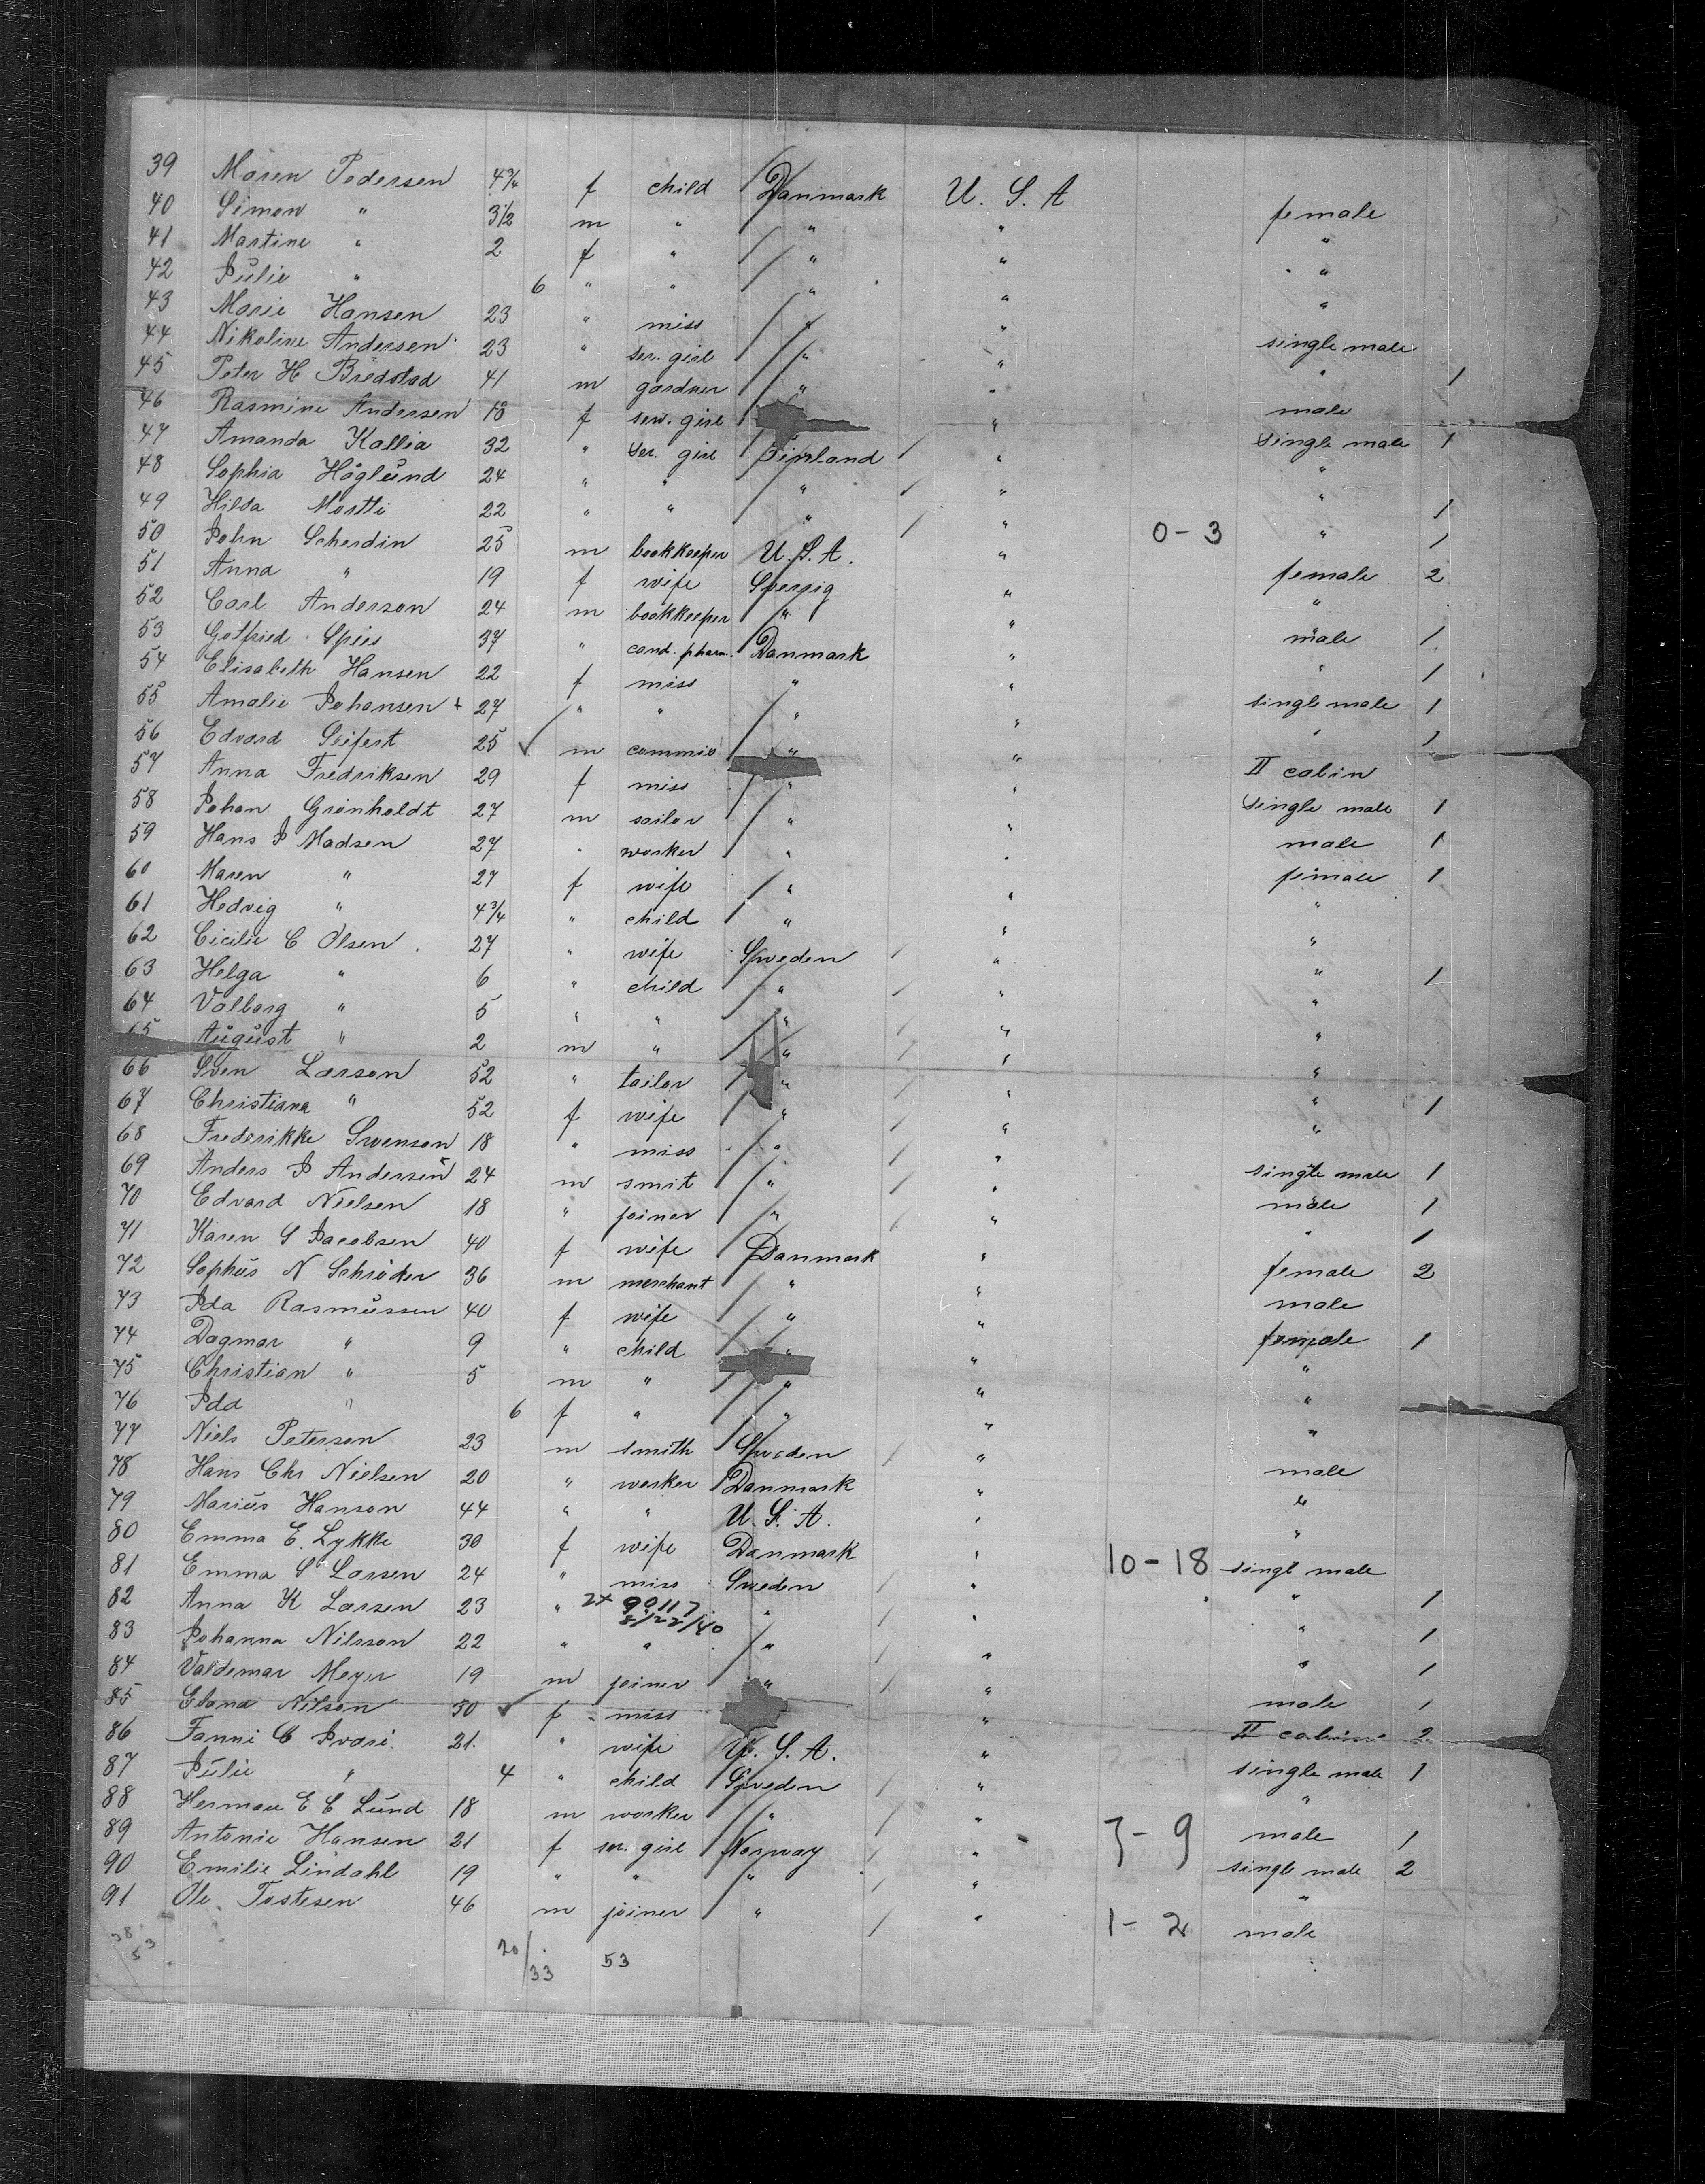 39 Maren Pedersen 4 3/4 f child Danmark U. S. A female
40 Simon " 3 1/2 m " " " "
41 Martine " 2 f " " " "
42 Julie " 6 " " " " "
43 Marie Hansen 23 " miss " " single male
44 Nikoline Andersen 23 " ser. girl " " " 1
45 Peter H Bredstad 41 m gardner " " male
46 Rasmine Andersen 18 f serv. girl " single male 1
47 Amanda Kallia 32 " ser. girl Finland / " "
48 Sophia Höglund 24 " " " / " " 1
49 Hilda Mortti 22 " " " / " 0-3 " 1
50 John Scherdin 25 m bookkeeper U. S. A. " female 2
51 Anna " 19 f wife Sverrig " "
52 Carl Anderson 24 m bookkeeper " " male 1
53 Gotfried Spies 37 " cand. pharm. Danmark " " 1
54 Elisabeth Hansen 22 f miss " " single male 1
55 Amalie Johansen + 27 " " " " " 1
56 Edvard Seifert 25 ✓ m commis " " II cabin
57 Anna Fredriksen 29 f miss " " single male 1
58 Johan Grönholdt 27 m sailor " " male 1
59 Hans J Madsen 27 " worker " " female 1
60 Maren " 27 f wife " " "
61 Hedvig " 4 3/4 " child " " "
62 Cicilie C Olsen 27 " wife Sweden / " " 1
63 Helga " 6 " child " / " "
64 Valborg " 5 " " " / " "
65 August " 2 m " " / " "
66 Sven Larson 52 " tailor " / " " 1
67 Christiana " 52 f wife " / " "
68 Frederikke Swenson 18 " miss " / " single male 1
69 Anders P Andersen 24 m smit " / " male 1
70 Edvard Nielsen 18 " joiner " / " " 1
71 Karen S Jacobsen 40 f wife Danmark " female 2
72 Sophus N Schröder 36 m merchant " " male
73 Ida Rasmussen 40 f wife " " female 1
74 Dagmar " 9 " child " " "
75 Christian " 5 m " " " "
76 Ida " 6 f " " " "
77 Niels Peterson 23 m smith Sweden / " male
78 Hans Chr Nielsen 20 " worker Danmark " "
79 Marius Hanson 44 " " U. S. A. " "
80 Emma E. Lykke 30 f wife Danmark " 10-18 singl male
81 Emma S Larsen 24 " miss Sweden / " " 1
82 Anna K Larsen 23 " 2x 90117 8/22/40 " / " " 1
83 Johanna Nilsson 22 " " " / " " 1
84 Valdemar Meyer 19 m joiner " / " male 1
85 Elana Nilson 30 ✓ f miss " II cabin 2
86 Fanni C Ivari 21. " wife U. S. A. " single male 1
87 Julie " 4 " child Sweden / " "
88 Herman E C Lund 18 m worker " / " male 1
89 Antonie Hansen 21 f ser. girl Norway / " 7-9 singl male 2
90 Emilie Lindahl 19 " " " / " "
91 Ole Tostesen 46 m joiner " / " 1-2 male
38
53
20/33 53